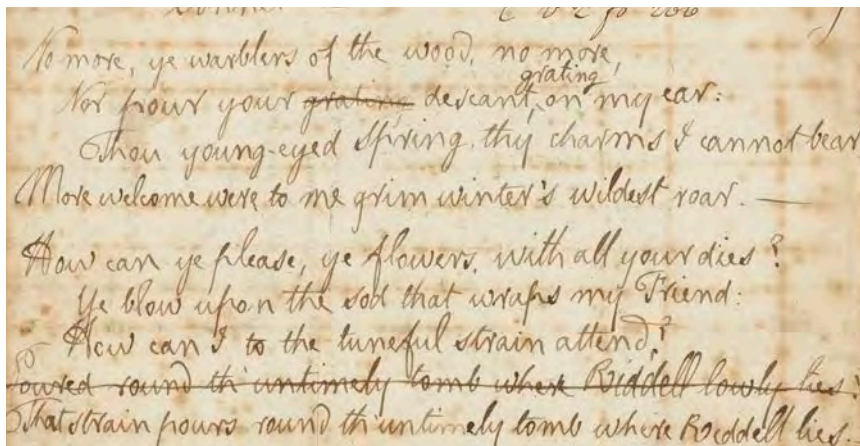 No more, ye warblers of the wood, no more,
grating
Nor pour your grating descant, on my ear:
Thou young-eyed Spring, thy charms I cannot bear
More welcome were to me grim winter's wildest roar. —
How can ye please, ye flowers, with all your dies?
Ye blow upon the sod that wraps my Friend:
How can I to the tuneful strain attend?
oured round th' untimely tomb where Riddell lowly lies.
That strain pours round th' untimely tomb where Riddell lies